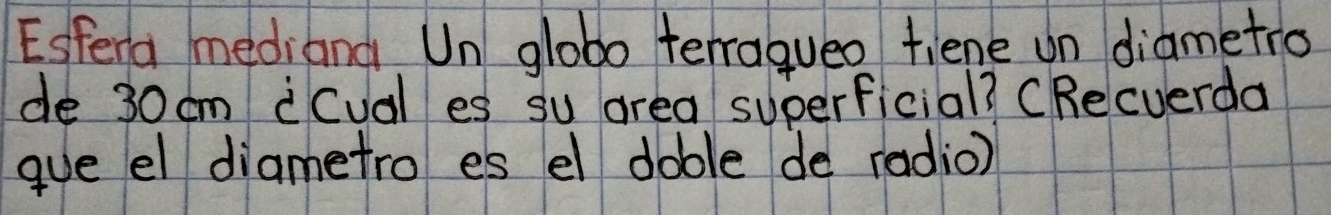 Esfera mediana Un globo terraqueo tiene un diametro
de 30cm ¿Cual es su area superficial? (Recuerda
que el diametro es el doble de radio)